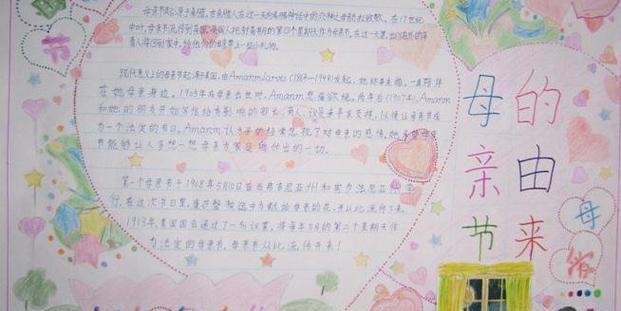 母亲节起源于希腊,古希腊人在这一天向希腊神话中的众神之母赫拉致敬。在17世纪
中叶,母亲节流传到英国,英国人把封斋期的第四个星期天作为母亲节。在这一天里,出门在外的年
青人将回到家中,给他们的母亲带上一些小礼物。
现代意义上的母亲节起源于美国,由Amanm Jarvis (1864-1948)发起,她终身未婚,一直陪伴
在她母亲身边。1905年母亲去世时,Amanm悲痛欲绝。两年后(1907年),Amanm
和她的朋友开始写信给有影响的部长、商人、议员来寻求支持,以便让母亲节成
为一个法定的节日。Amanm认为子女经常忽视了对母亲的感情,她希望母亲
节能够让人多想一想母亲为家庭所付出的一切。
第一个母亲节于1908年5月10日在西弗吉尼亚州和宾夕法尼亚州举
行,在这次节日里,康乃馨被选中为献给母亲的花,并从此流传下来。
1913年,美国国会通过了一份议案,将每年5月的第二个星期天作
为法定的母亲节,母亲节从此流传开来!
母亲节
的由来
节
母